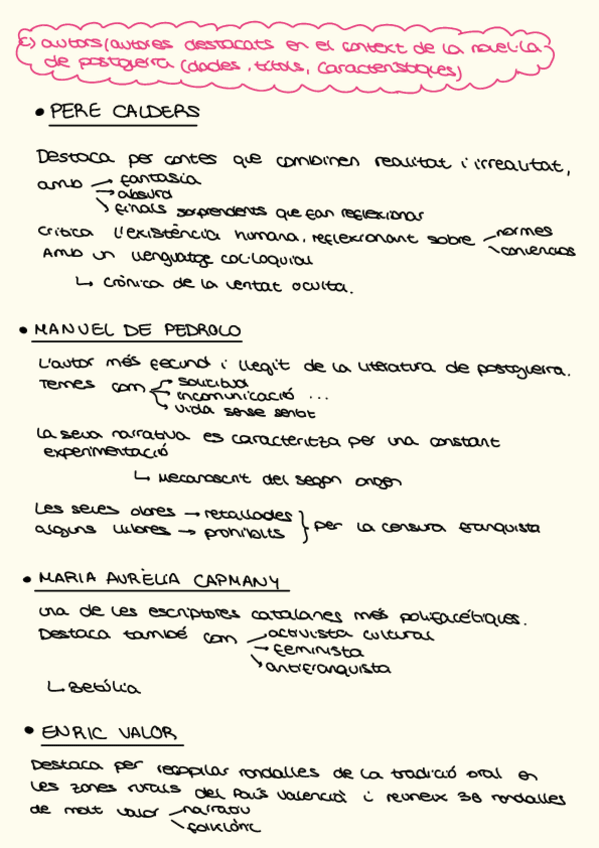 c) autors/autores destacats en el context de la novel·la
de postguerra (dades, títols, característiques)
• PERE CALDERS
Destaca per contes que combinen realitat i irrealitat,
amb → fantasia
→ absurd
→ finals sorprendents que fan reflexionar
Crítica l'existència humana, reflexionant sobre normes
conviencias
Amb un llenguatge col·loquial
↳ Crònica de la veritat oculta.
• MANUEL DE PEDROLO
L'autor més fecund i llegit de la literatura de postguerra.
Temes com solitud
incomunicació ...
vida sense sentit
La seva narrativa es caracteritza per una constant
experimentació
↳ Mecanoscrit del segon origen
Les seves obres → retallades } per la censura franquista
alguns llibres → prohibits
• MARIA AURÈLIA CAPMANY
Una de les escriptores catalanes més polifacètiques.
Destaca també com activista cultural
→ feminista
antifranquista
↳ Betúlia
• ENRIC VALOR
Destaca per recopilar rondalles de la tradició oral en
les zones rurals del País Valencià i reuneix 38 rondalles
de molt valor narratiu
folklòric